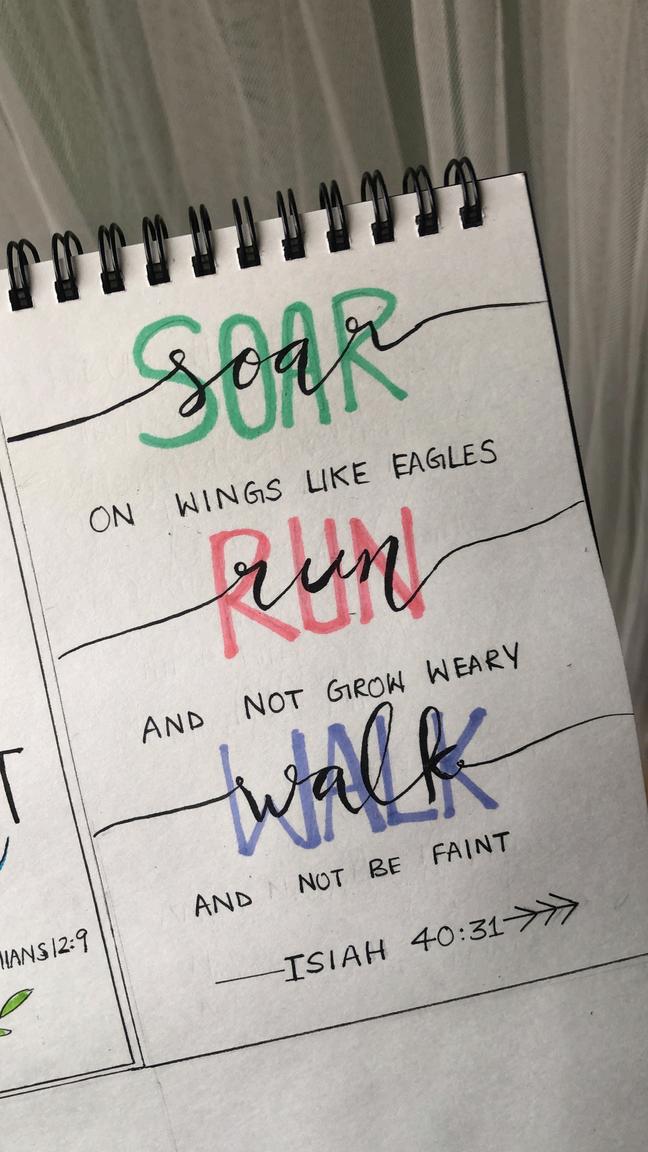 SOAR
soar
ON WINGS LIKE EAGLES
RUN
run
AND NOT GROW WEARY
WALK
walk
AND NOT BE FAINT
ISIAH 40:31
12:9